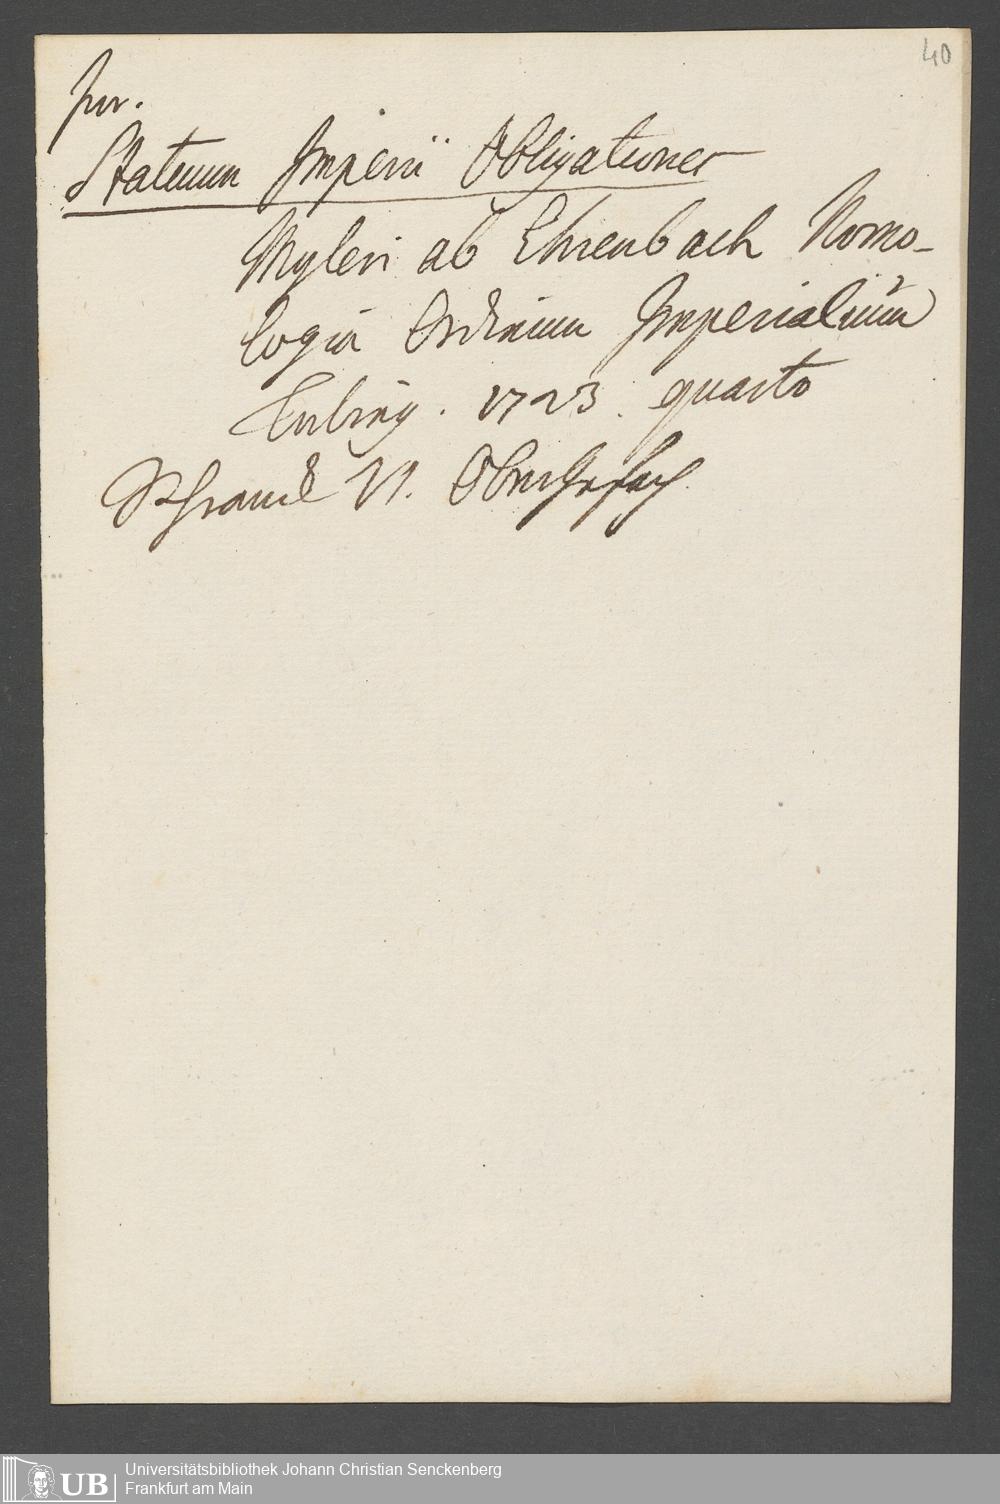 40
Jur.
Statuum Imperii Obligationes
Myleri ab Ehrenbach Nomo-
logia Ordinum Imperialium
Tubing. 1723. quarto
Schranck VI. Oberstes Fach
UB Universitätsbibliothek Johann Christian Senckenberg
Frankfurt am Main